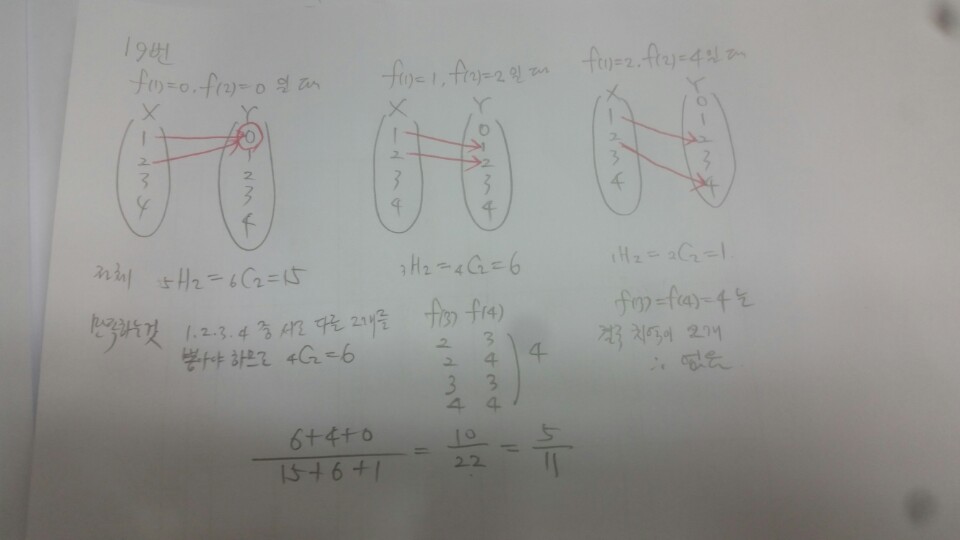 19번
f(1)=0, f(2)=0 일 때
X Y
1 0
2 1
3 2
4 3
4
f(1)=1, f(2)=2 일 때
X Y
1 0
2 1
3 2
4 3
4
f(1)=2, f(2)=4 일 때
X Y
1 0
2 1
3 2
4 3
4
전체 ₅H₂=₆C₂=15
₃H₂=₄C₂=6
₁H₂=₂C₂=1
만족하는것 1.2.3.4 중 서로 다른 2개를
뽑아야 하므로 ₄C₂=6
f(3) f(4)
2 3
2 4
3 3
4 4
4
f(3)=f(4)=4 는
결국 치역이 2개
∴ 없음
(6+4+0)/(15+6+1) = 10/22 = 5/11